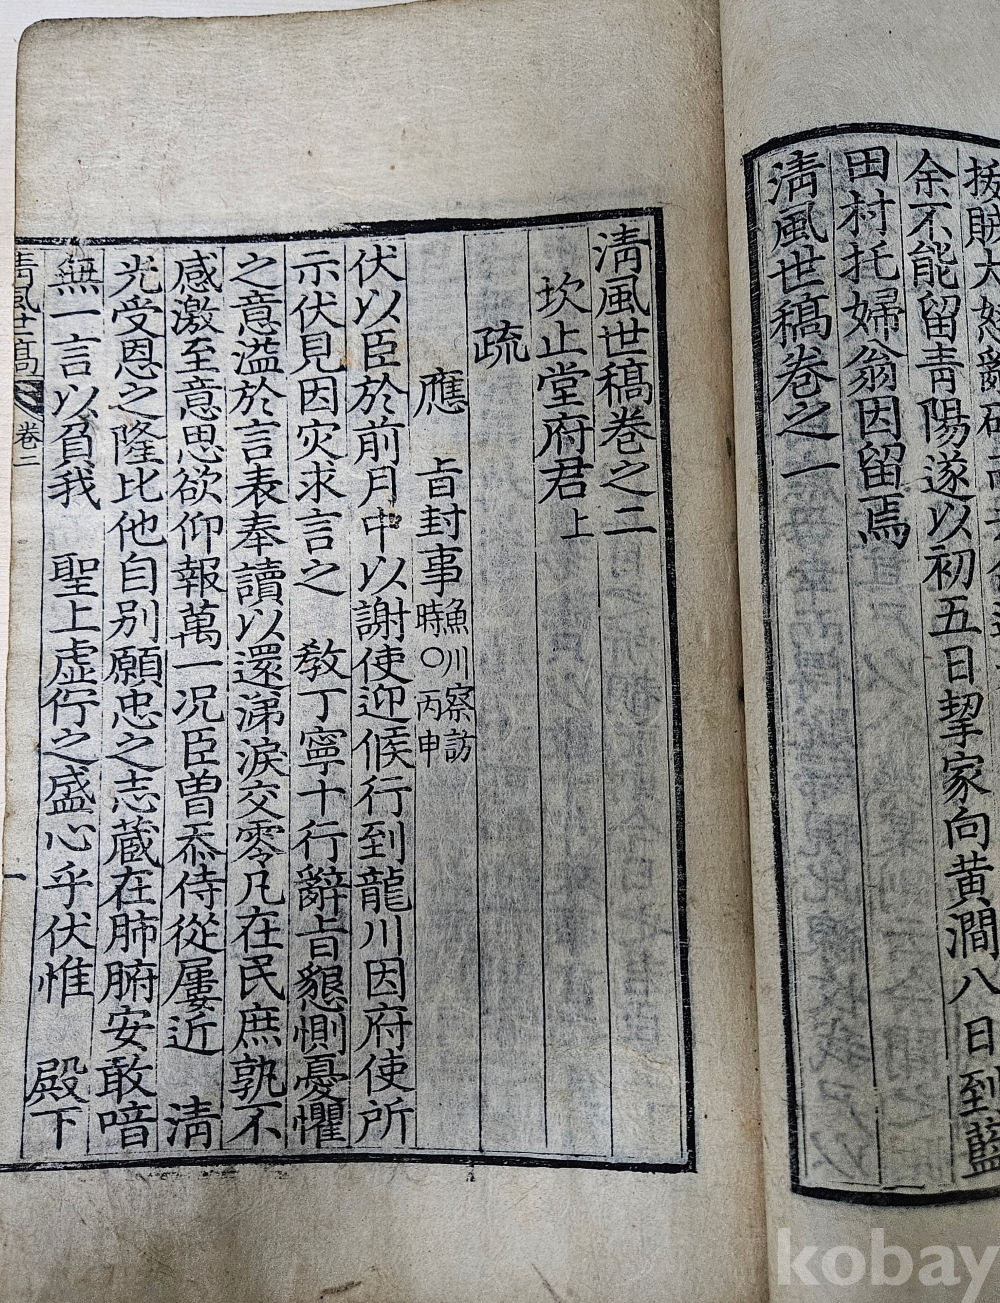 余不能留靑陽遂以初五日挈家向黃澗八日到藍
田村托婦翁因留焉
淸風世稿卷之一
淸風世稿卷之二
坎止堂府君上
疏
應 旨封事魚川察訪時○丙申
伏以臣於前月中以謝使迎候行到龍川因府使所
示伏見因灾求言之 敎丁寧十行辭旨懇惻憂懼
之意溢於言表奉讀以還涕淚交零凡在民庶孰不
感激至意思欲仰報萬一况臣曾忝侍從屢近 淸
光受恩之隆比他自別願忠之志蔵在肺腑安敢喑
無一言以負我 聖上虛佇之盛心乎伏惟 殿下
淸風世稿 卷二
一
kobay